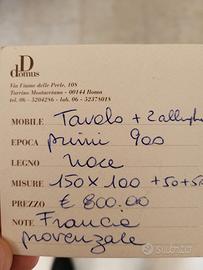 D
domus
Via Fiume delle Perle, 108
Torrino Mostacciano - 00144 Roma
tel. 06 - 5204286 - lab. 06 - 52378018
MOBILE Tavolo + 2 allunghe
EPOCA primi 900
LEGNO noce
MISURE 150 x 100 +50+50
PREZZO € 800.00
NOTE Francia
provenzale
subito.it